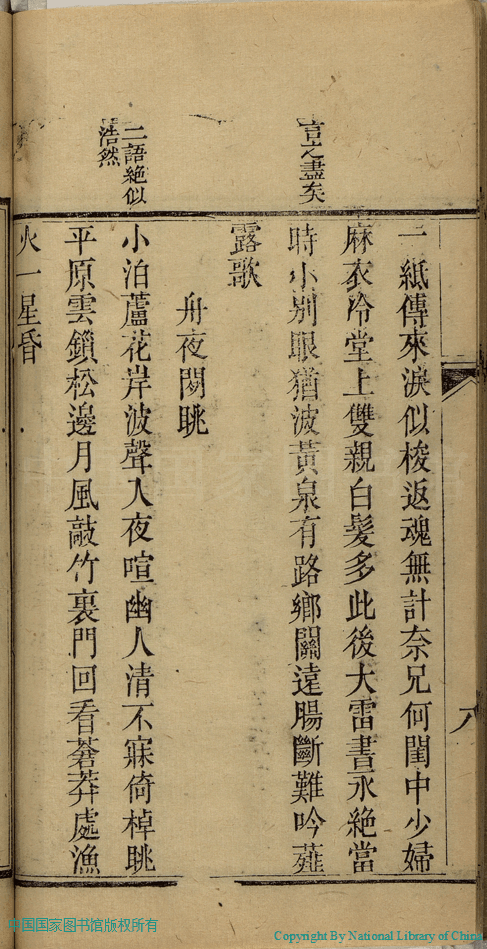 言之盡矣
一紙傳來淚似梭返魂無計奈兄何閨中少婦
麻衣冷堂上雙親白髮多此後大雷書永絕當
時小别眼猶波黃泉有路鄉關遠腸斷難吟薤
露歌
舟夜閒眺
二語絶似
浩然
小泊蘆花岸波聲入夜喧幽人清不寐倚棹眺
平原雲鎖松邊月風敲竹裏門回看蒼莽處漁
火一星昏
八
中国国家图书馆版权所有
Copyright By National Library of China